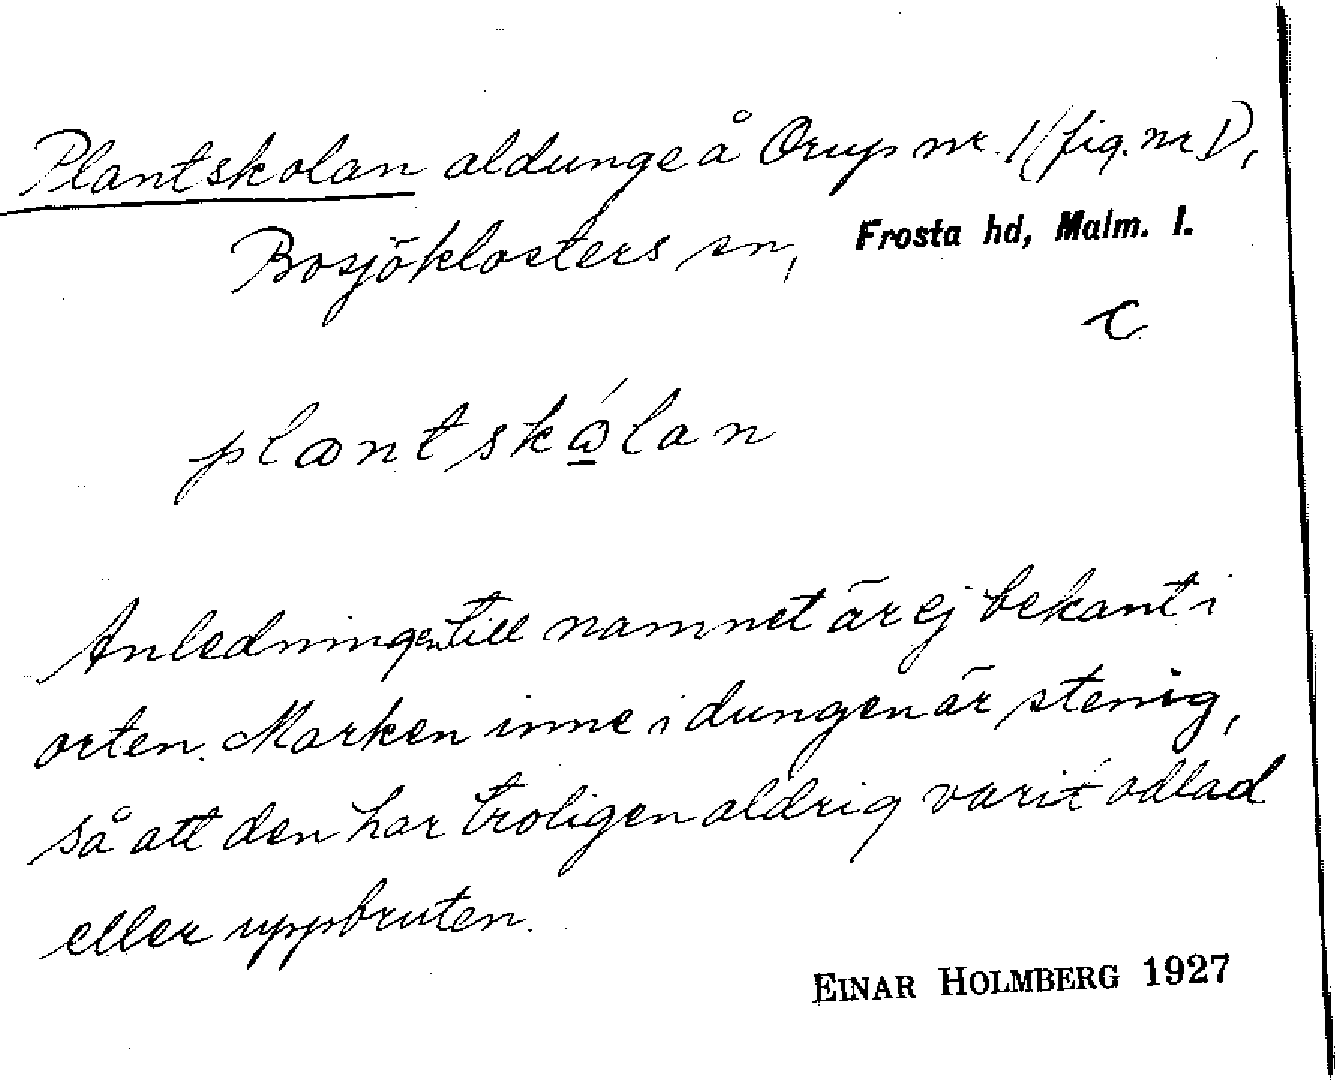 Plantskolan aldunge å Orup nr. 1 (fig. nr 1),
Bosjöklosters sn, Frosta hd, Malm. l.
c
plantskålan
Anledningen till namnet är ej bekant i
orten. Marken inne i dungen är stenig,
så att den har troligen aldrig varit odlad
eller uppbruten.
EINAR HOLMBERG 1927